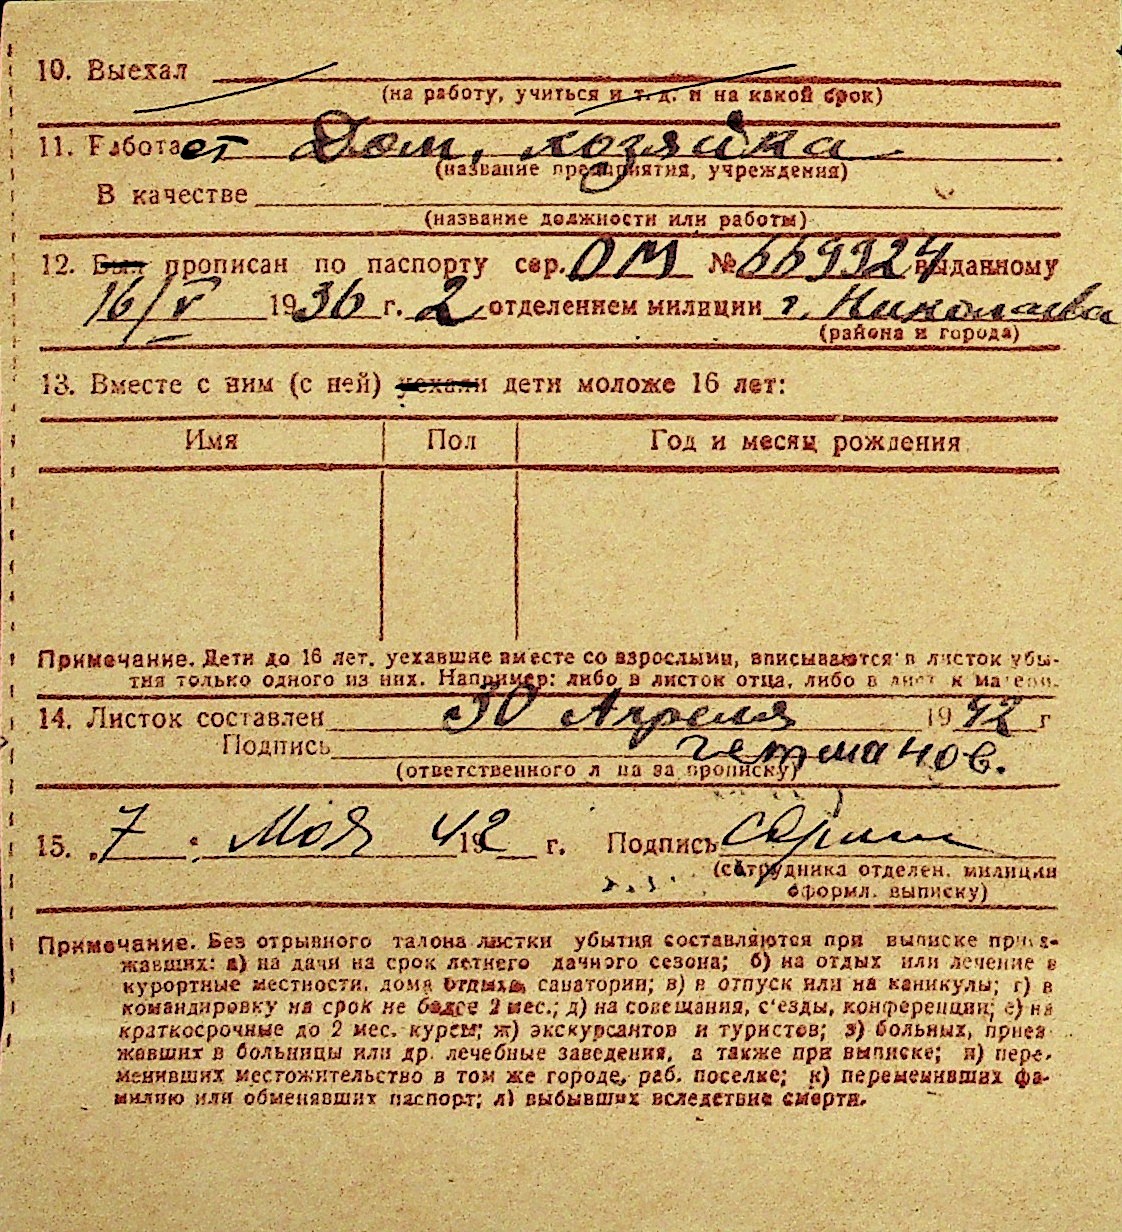 10. Выехал
(на работу, учиться и т. д. и на какой срок)
11. Работает Дом. хозяйка
(название предприятия, учреждения)
В качестве
(название должности или работы)
12. Был прописан по паспорту сер. ОМ № 669924 выданному
16/V 1936 г. 2 отделением милиции г. Николаева
(района и города)
13. Вместе с ним (с ней) уехали дети моложе 16 лет:
Имя Пол Год и месяц рождения
Примечание. Дети до 16 лет, уехавшие вместе со взрослыми, вписываются в листок убы-
тия только одного из них. Например: либо в листок отца, либо в листок матери.
14. Листок составлен 30 Апреля 1942 г
Подпись Гетманов.
(ответственного лица за прописку)
15. „7“ Мая 1942 г. Подпись
(сотрудника отделен. милиции
оформл. выписку)
Примечание. Без отрывного талона листки убытия составляются при выписке приез-
жавших: а) на дачи на срок летнего дачного сезона; б) на отдых или лечение в
курортные местности, дома отдыха, санатории; в) в отпуск или на каникулы; г) в
командировку на срок не более 2 мес.; д) на совещания, с'езды, конференции; е) на
краткосрочные до 2 мес. курсы; ж) экскурсантов и туристов; з) больных, приез
жавших в больницы или др. лечебные заведения, а также при выписке; и) пере-
менивших местожительство в том же городе, раб. поселке; к) переменивших фа-
милию или обменявших паспорт; л) выбывших вследствие смерти.